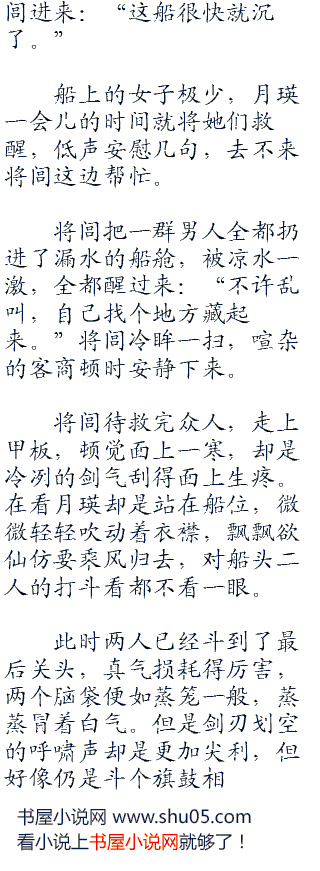 闾进来：“这船很快就沉
了。”
船上的女子极少，月瑛
一会儿的时间就将她们救
醒，低声安慰几句，去不来
将闾这边帮忙。
将闾把一群男人全都扔
进了漏水的船舱，被凉水一
激，全都醒过来：“不许乱
叫，自己找个地方藏起
来。”将闾冷眸一扫，喧杂
的客商顿时安静下来。
将闾待救完众人，走上
甲板，顿觉面上一寒，却是
冷冽的剑气刮得面上生疼。
在看月瑛却是站在船位，微
微轻轻吹动着衣襟，飘飘欲
仙仿要乘风归去，对船头二
人的打斗看都不看一眼。
此时两人已经斗到了最
后关头，真气损耗得厉害，
两个脑袋便如蒸笼一般，蒸
蒸冒着白气。但是剑刃划空
的呼啸声却是更加尖利，但
好像仍是斗个旗鼓相
书屋小说网 www.shu05.com
看小说上书屋小说网就够了！